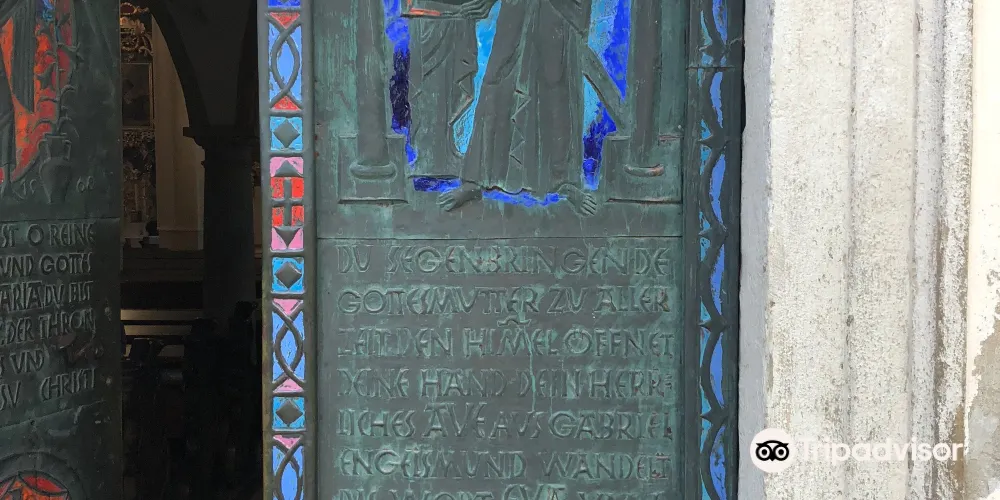 1566
ST O REINE
UND GOTTES
ARIA DU BIST
DER THRON
S UND
SU CHRISTI
DU SEGENBRINGENDE
GOTTESMUTTER ZU ALLER
ZEIT. DEN HIMEL ÖFFNET
DEINE HAND. DEIN HERR-
LICHES AVE AUS GABRIEL
ENGELSMUND WANDELT
DAS WORT EVA
Tripadvisor